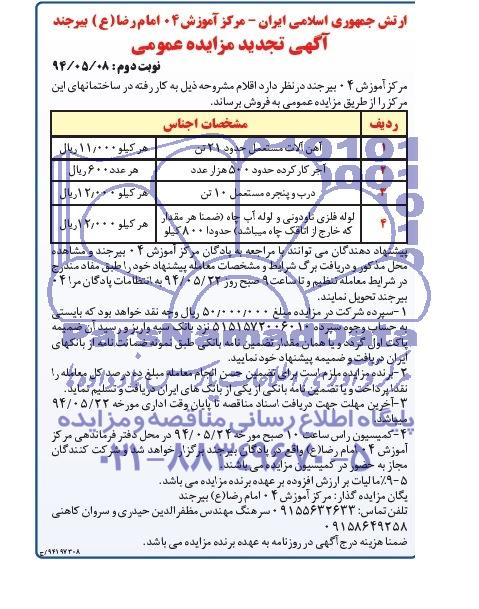 ارتش جمهوری اسلامی ایران - مرکز آموزش ۰۴ امام رضا (ع) بیرجند
آگهی تجدید مزایده عمومی
نوبت دوم: ۹۴/۰۵/۰۸
مرکز آموزش ۰۴ بیرجند درنظر دارد اقلام مشروحه ذیل به کار رفته در ساختمانهای این
مرکز را از طریق مزایده عمومی به فروش برساند.
ردیف مشخصات اجناس
۱ آهن آلات مستعمل حدود ۲۱ تن هر کیلو ۱۱/۰۰۰ ریال
۲ آجر کارکرده حدود ۵۰۰ هزار عدد هر عدد ۶۰۰ ریال
۳ درب و پنجره مستعمل ۱۰ تن هر کیلو ۱۲/۰۰۰ ریال
۴ لوله فلزی ناودونی و لوله آب چاه (ضمنا هر مقدار هر کیلو ۱۲/۰۰۰ ریال
که خارج از اتاقک چاه میباشد) حدودا ۸۰۰ کیلو
پیشنهاد دهندگان می توانند با مراجعه به پادگان مرکز آموزش ۰۴ بیرجند و مشاهده
محل مذکور و دریافت برگ شرایط و مشخصات معامله پیشنهاد خود را طبق مفاد مندرج
در شرایط معامله تنظیم و تا ساعت ۹ صبح روز ۹۴/۰۵/۲۲ به انتظامات پادگان مرا ۰۴
بیرجند تحویل نمایند.
۱- سپرده شرکت در مزایده مبلغ ۵۰/۰۰۰/۰۰۰ ریال وجه نقد خواهد بود که بایستی
به حساب وجوه سپرده ۵۱۵۱۵۷۲۰۰۶۰۱۰ نزد بانک سپه واریز و رسید آن ضمیمه
پاکت اول گردد و یا همان مقدار تضمین نامه بانکی طبق نمونه ضمانت نامه از بانکهای
ایران دریافت و ضمیمه پیشنهاد خود نمایید.
۲- برنده مزایده ملزم است برای تضمین حسن انجام معامله مبلغ ده درصد کل معامله را
نقدا پرداخت و یا تضمین نامه بانکی از یکی از بانک های ایران دریافت و تسلیم نماید.
۳- آخرین مهلت جهت دریافت اسناد مناقصه تا پایان وقت اداری مورخه ۹۴/۰۵/۲۲
میباشد.
پایگاه اطلاع رسانی مناقصه و مزایده
۴- کمیسیون راس ساعت ۱۰ صبح مورخه ۹۴/۰۵/۲۴ در محل دفتر فرماندهی مرکز
آموزش ۰۴ امام رضا (ع) واقع در پادگان بیرجند برگزار خواهد شد و شرکت کنندگان
مجاز به حضور در کمیسیون مزایده می باشند.
۰۲۱-۸۸۳۴۹۶۷۰-۵
۵- ۹٪ مالیات بر ارزش افزوده بر عهده برنده مزایده می باشد.
یگان مزایده گذار: مرکز آموزش ۰۴ امام رضا (ع) بیرجند
تلفن تماس: ۰۹۱۵۵۶۳۲۶۳۳ سرهنگ مهندس مظفرالدین حیدری و سروان کاهنی
۰۹۱۵۸۶۴۹۲۵۸
ضمنا هزینه درج آگهی در روزنامه به عهده برنده مزایده می باشد.
۹۴۱۹۷۳۰۸/ح